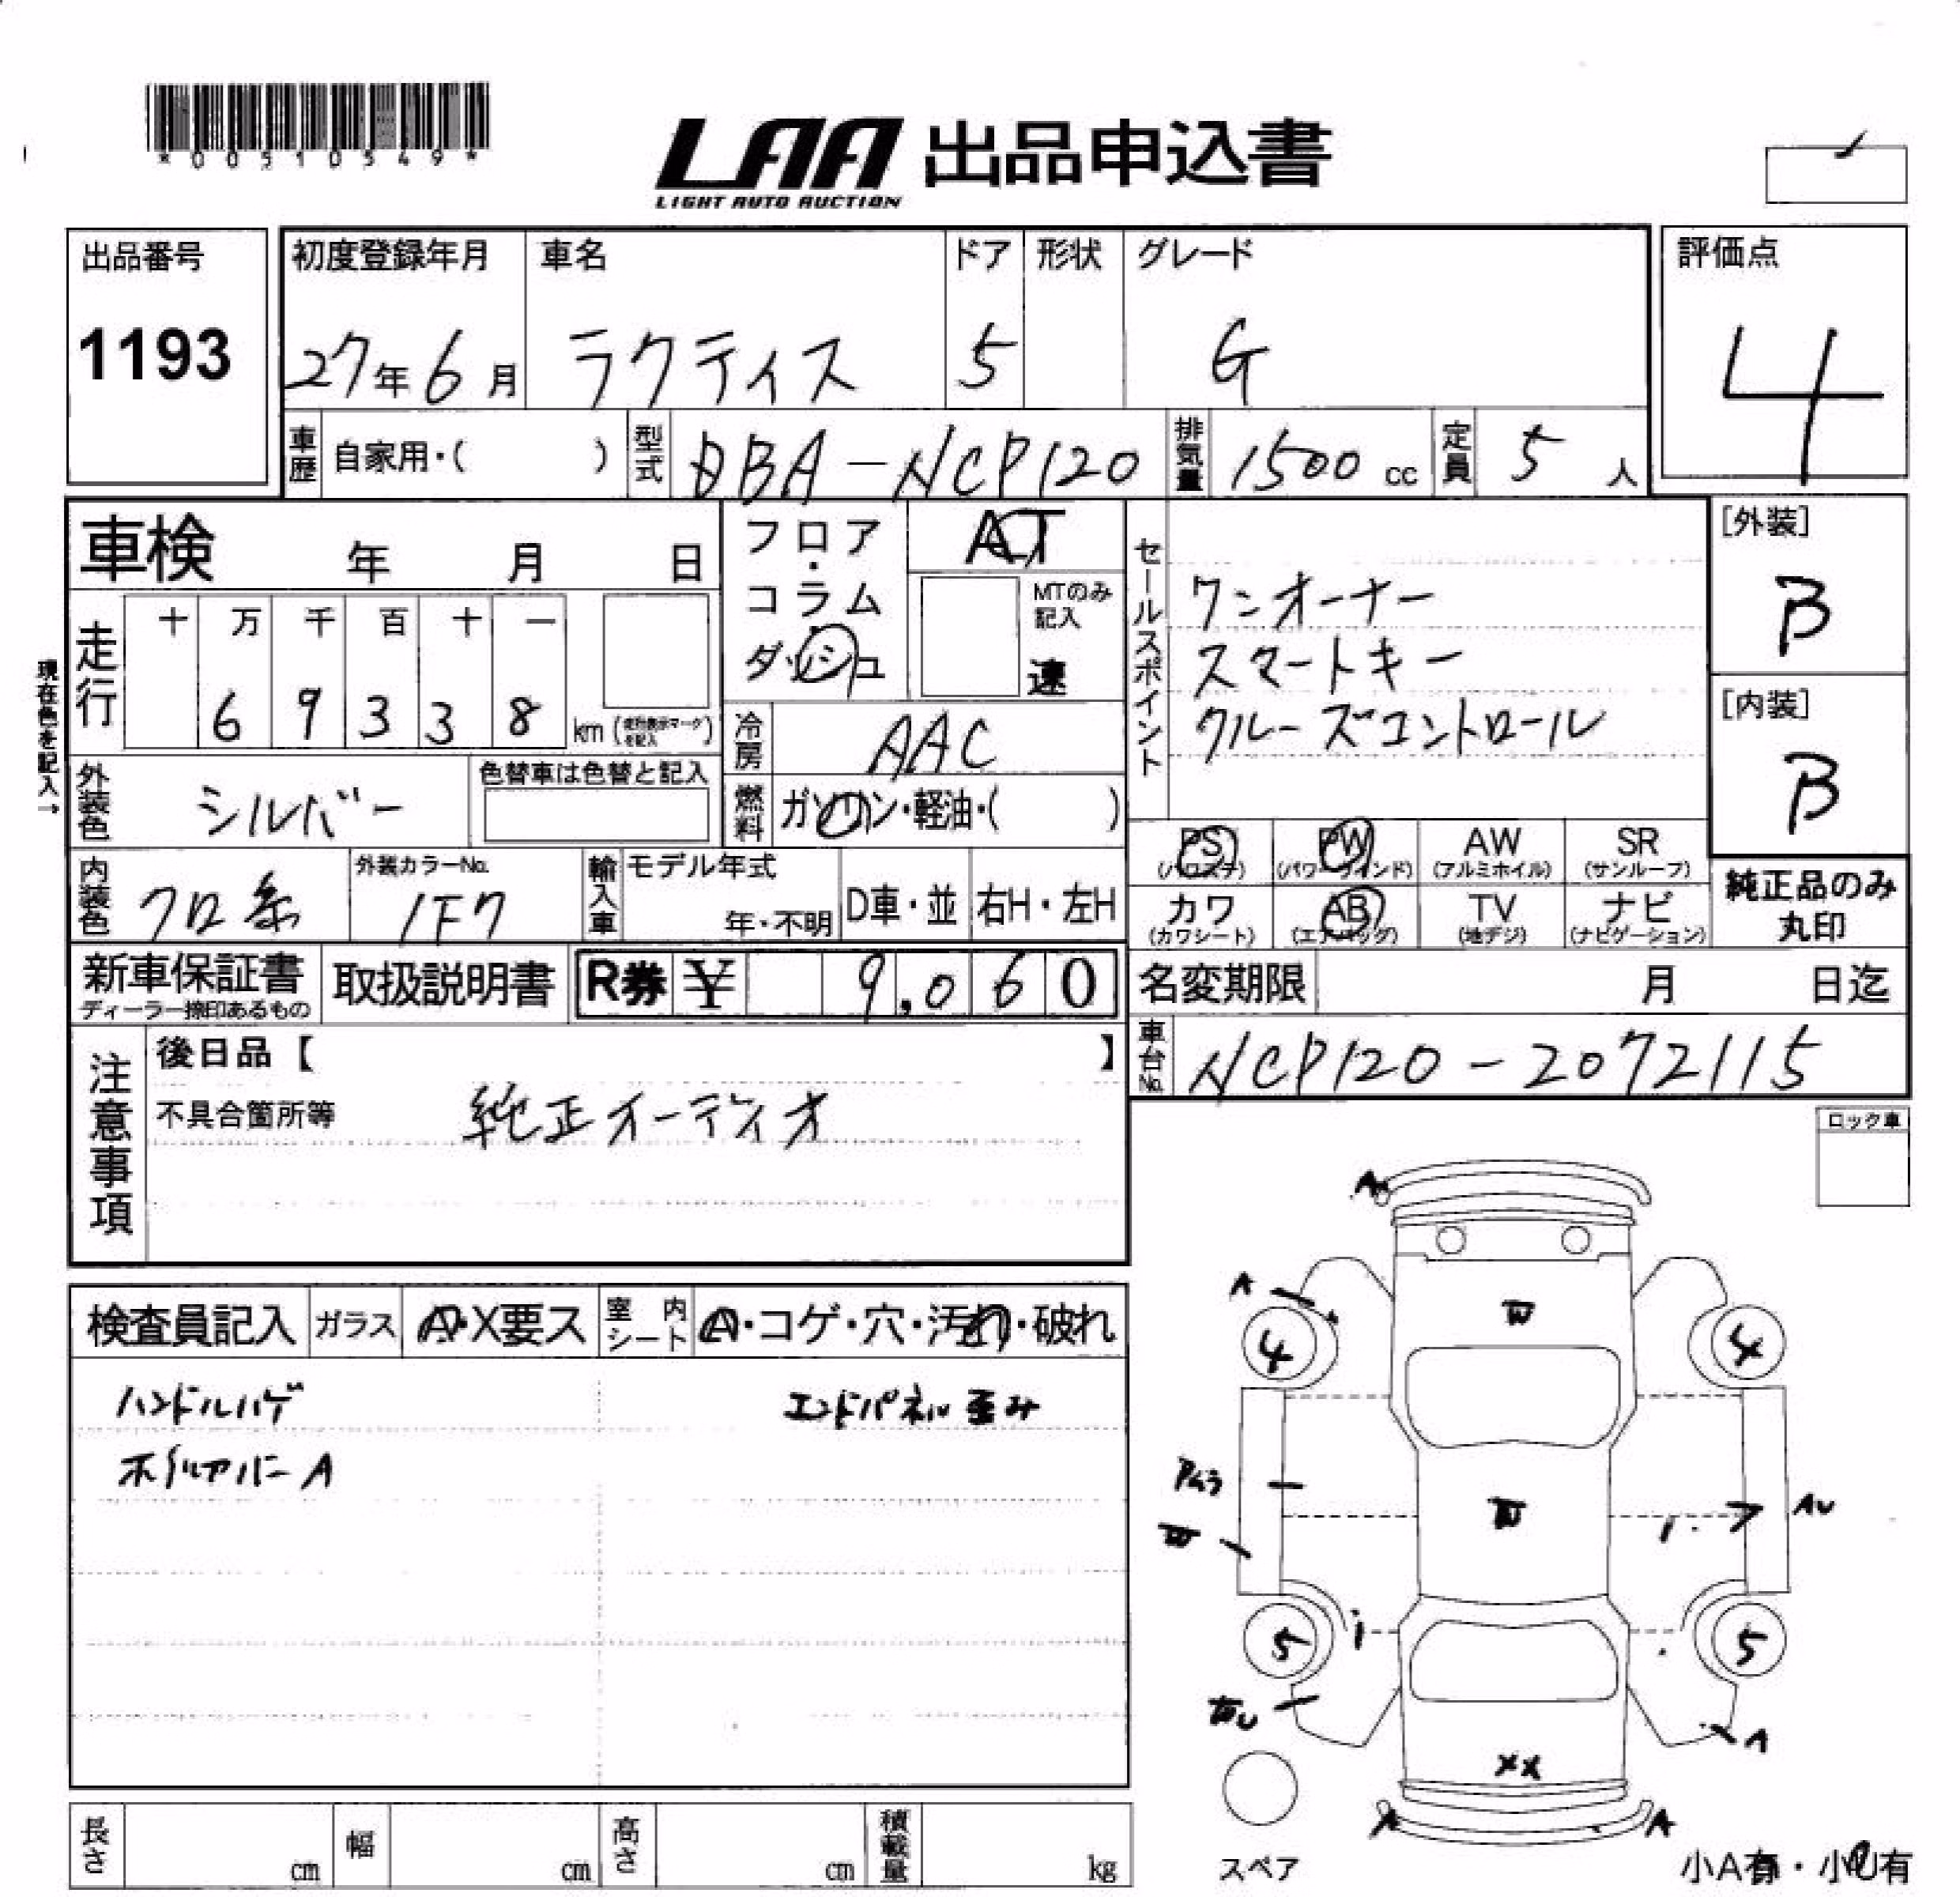 *00510549*
LAA 出品申込書
LIGHT AUTO AUCTION
出品番号
1193
初度登録年月
27年6月
車名
ラクティス
ドア
5
形状
グレード
G
評価点
4
車歴
自家用・( )
型式
DBA-NCP120
排気量
1500 cc
定員
5 人
車検 年 月 日
走行
十 万 千 百 十 一
6 9 3 3 8
km
現在色を記入→
フロア・コラム・ダッシュ
AT
MTのみ
記入
速
冷房
AAC
燃料
ガソリン・軽油・( )
セールスポイント
ワンオーナー
スマートキー
クルーズコントロール
[外装]
B
[内装]
B
外装色
シルバー
色替車は色替と記入
内装色
クロ系
外装カラーNo.
1F7
輸入車
モデル年式
年・不明
D車・並
右H・左H
PS
(パワステ)
PW
(パワーウィンド)
AW
(アルミホイル)
SR
(サンルーフ)
カワ
(カワシート)
AB
(エアバッグ)
TV
(地デジ)
ナビ
(ナビゲーション)
純正品のみ
丸印
新車保証書
ディーラー捺印あるもの
取扱説明書
R券 ¥ 9,060
名変期限 月 日迄
車台No.
NCP120-2072115
注意事項
後日品【 】
不具合箇所等
純正オーディオ
ロック車
検査員記入
ガラス
A・X要ス
室内シート
A・コゲ・穴・汚れ・破れ
ハンドルハゲ
エンドパネル歪み
ホイルカバーA
A
A
W
4
4
Pムラ
W
W
AU
5
5
A
XX
A
スペア
小A有・小U有
長さ cm
幅 cm
高さ cm
積載量 kg